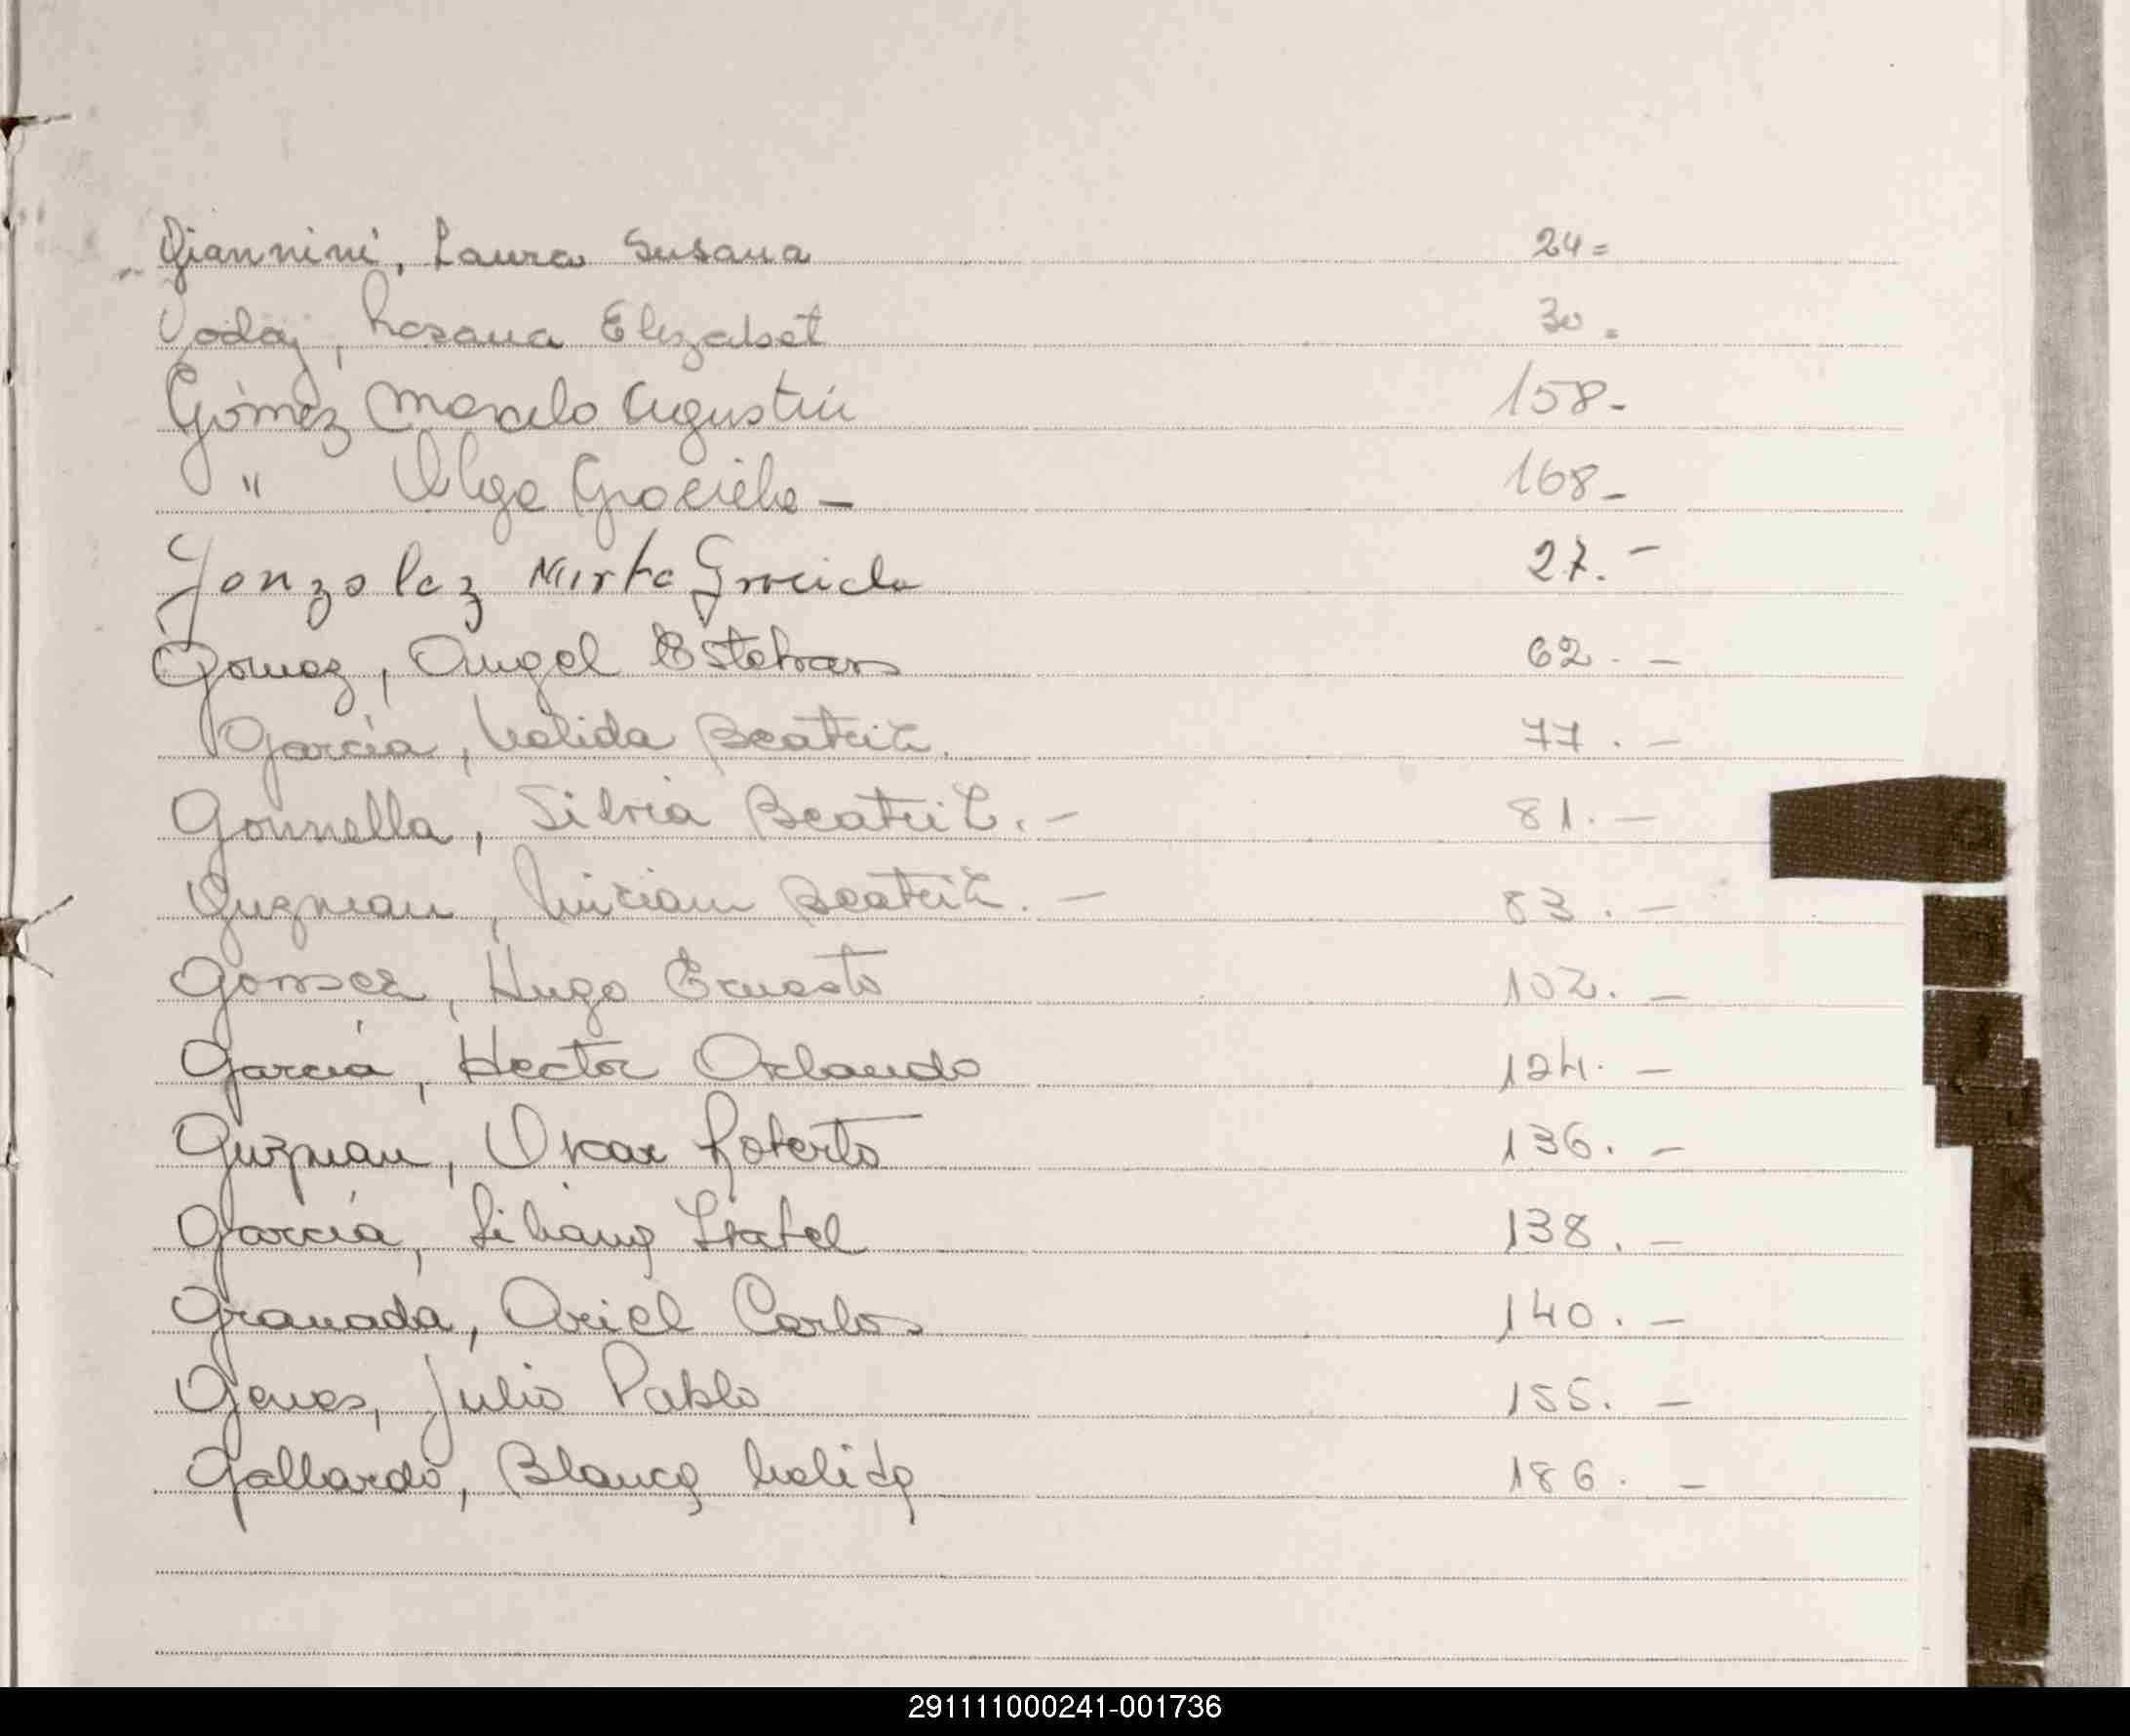 Giannini, Laura Susana 24=
Goday, Rosana Elizabet 30.
Gómez Marcelo Agustin 158-
" Olga Graciela - 168-
Gonzalez Mirta Graciela 27.-
Gomez, Angel Esteban 62.-
García, Nelida Beatriz. 77.-
Gonnella, Silvia Beatriz.- 81.-
Guzman, Miriam Beatriz.- 83.-
Gomez, Hugo Ernesto 102.-
García, Hector Orlando 124.-
Guzman, Oscar Roberto 136.-
García, Liliana Isabel 138.-
Granada, Ariel Carlos 140.-
Genes, Julio Pablo 155.-
Gallardo, Blanca Nelida 186.-
291111000241-001736